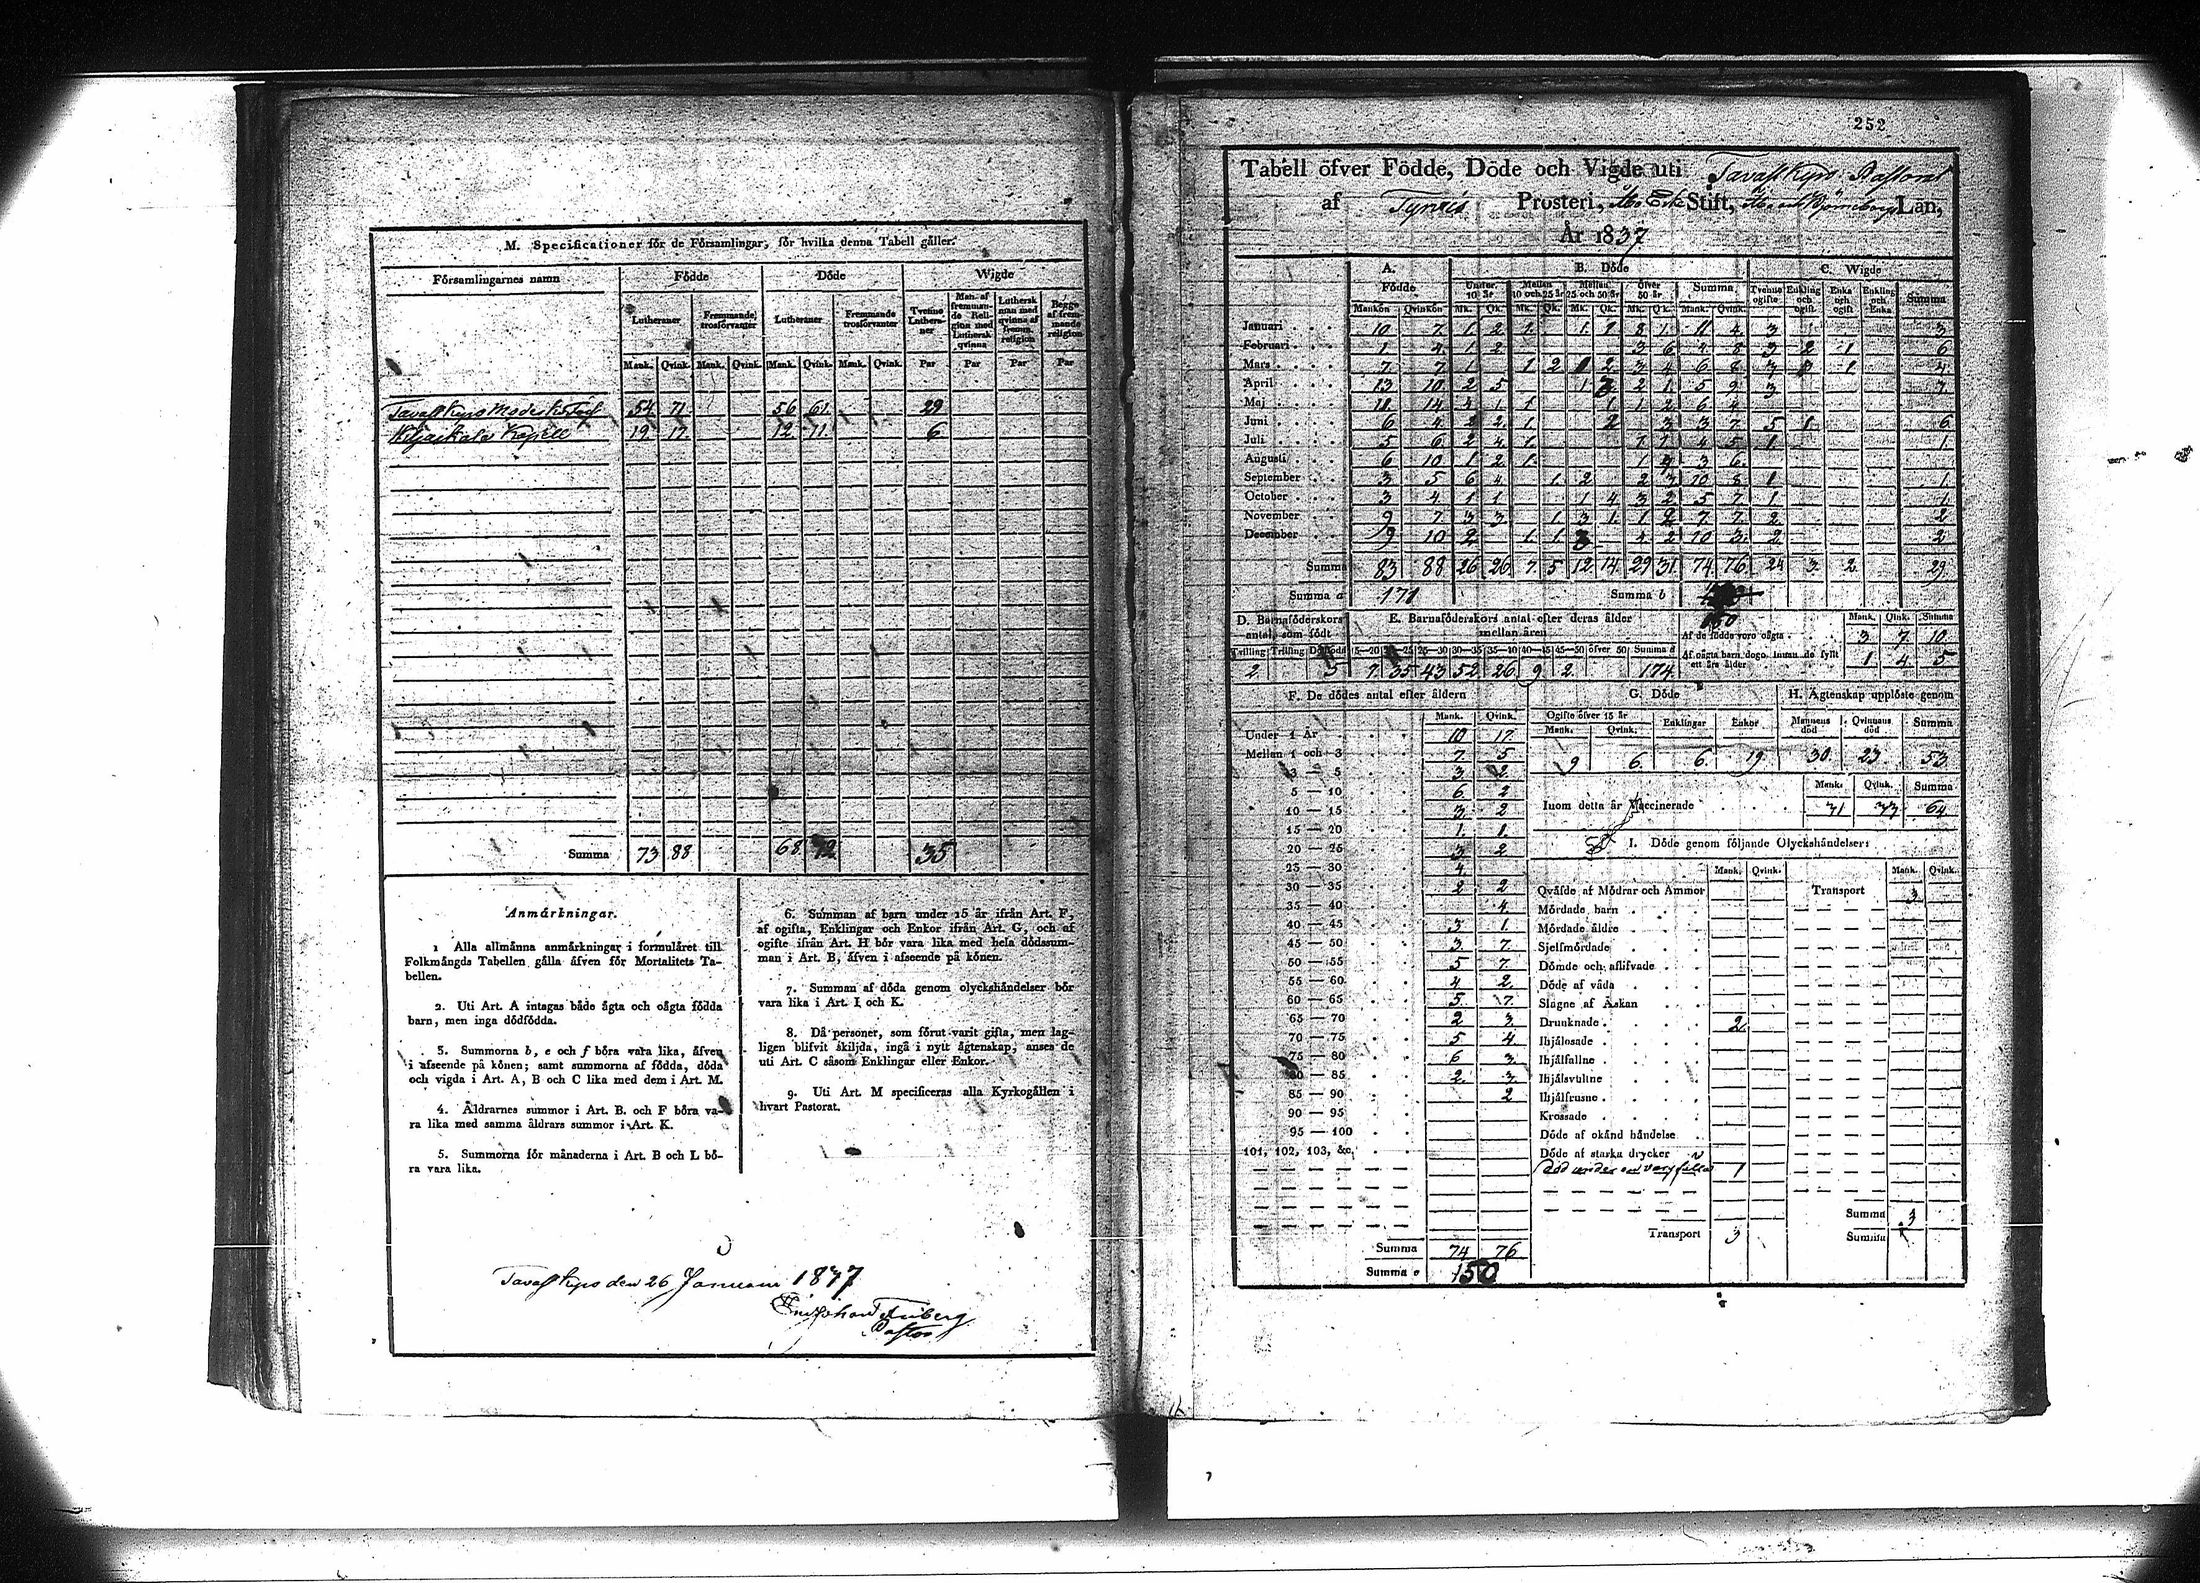 M. Specificationer för de Församlingar, för hvilka denna Tabell gäller.
Församlingarnes namn Födde Döde Wigde
Lutheraner Fremmande trosförvanter Lutheraner Fremmande trosförvanter Tvenne Lutheraner Man af fremmande Religion med Luthersk qvinna Luthersk man med qvinna af fremm. religion Begge af fremmande religion
Mank. Qvink. Mank. Qvink. Mank. Qvink. Mank. Qvink. Par Par Par Par
Tavast Kyro 54 71 56 61 29
Kapell 19 17 12 11 6
Summa 73 88 68 72 35
Anmärkningar.
1 Alla allmänna anmärkningar i formuläret till
Folkmängds Tabellen gälla äfven för Mortalitets Ta-
bellen.
2. Uti Art. A intagas både ägta och oägta födda
barn, men inga dödfödda.
3. Summorna b, e och f böra vara lika, äfven
i afseende på könen; samt summorna af födda, döda
och vigda i Art. A, B och C lika med dem i Art. M.
4. Äldrarnes summor i Art. B. och F böra va-
ra lika med samma äldrars summor i Art. K.
5. Summorna för månaderna i Art. B och L bö-
ra vara lika.
6. Summan af barn under 15 år ifrån Art. F,
af ogifta, Enklingar och Enkor ifrån Art. G, och af
ogifte ifrån Art. H bör vara lika med hela dödssum-
man i Art. B, äfven i afseende på könen.
7. Summan af döda genom olyckshändelser bör
vara lika i Art. I och K.
8. Då personer, som förut varit gifta, men lag-
ligen blifvit skiljda, ingå i nytt ägtenskap, anses de
uti Art. C såsom Enklingar eller Enkor.
9. Uti Art. M specificeras alla Kyrkogällen i
hvart Pastorat.
Tavast Kyro den 26 Januarii 1837
Pastor
252
Tabell öfver Födde, Döde och Vigde uti Tavast Kyro Pastorat
af Tyrvis Prosteri, Åbo Erke Stift, Åbo och Björneborgs Län,
År 1837
A. Födde B. Döde C. Wigde
Under 10 år Mellan 10 och 25 år Mellan 25 och 50 år Öfver 50 år Summa Tvenne ogifte Enkling och ogift Enka och ogift Enkling och Enka Summa
Mankön Qvinkön Mk. Qk. Mk. Qk. Mk. Qk. Mk. Qk. Mank. Qvink.
Januari 10 7 1 2 1 1 1 8 1 11 4 3 3
Februari 1 4 1 2 3 6 4 8 3 2 1 6
Mars 7 7 1 1 2 1 2 3 4 6 8 3 1 4
April 13 10 2 5 1 3 2 1 5 9 3
Maj 11 14 4 1 1 1 1 2 6 4
Juni 6 4 2 2 1 2 3 3 7 5 1 6
Juli 5 6 2 4 1 1 1 4 5 1 1
Augusti 6 10 1 2 1 1 3 6
September 3 5 6 4 1 2 2 3 10 8 1 1
October 3 4 1 1 1 4 3 2 5 7 1 1
November 9 7 3 3 1 3 1 1 2 7 7 2 2
December 9 10 2 1 1 3 4 2 10 3 2 2
Summa 83 88 26 26 7 5 12 14 29 31 74 76 24 3 2 29
Summa a 171 Summa b
150
D. Barnaföderskors antal, som födt E. Barnaföderskors antal efter deras ålder mellan åren Mank. Qink. Summa
Af de födda voro oägta 3 7 10
Tvilling Trilling Dödfödd 15—20 20—25 25—30 30—35 35—40 40—45 45—50 öfver 50 Summa d Af oägta barn dogo innan de fyllt ett års ålder 1 4 5
2 5 7 35 43 52 26 9 2 174
F. De dödes antal efter åldern G. Döde H. Ägtenskap upplöste genom
Mank. Qvink. Ogifte öfver 15 år Enklingar Enkor Mannens död Qvinnans död Summa
Mank. Qvink.
9 6 6 19 30 23 53
Under 1 År 10 17
Mellan 1 och 3 7 5
3 — 5 3 2
5 — 10 6 2
10 — 15 3 2
15 — 20 1 1
20 — 25 3 2
25 — 30 4
30 — 35 2 2
35 — 40 4
40 — 45 3 1
45 — 50 3 7
50 — 55 5 7
55 — 60 4 2
60 — 65 5 7
65 — 70 2 3
70 — 75 5 4
75 — 80 6 3
80 — 85 2 3
85 — 90 2
90 — 95
95 — 100
101, 102, 103, &c.
Summa 74 76
Summa e 150
Mank. Qvink. Summa
Inom detta år Vaccinerade 31 33 64
I. Döde genom följande Olyckshändelser:
Mank. Qvink. Mank. Qvink.
Qväfde af Mödrar och Ammor Transport 3
Mördade barn
Mördade äldre
Sjelfmördade
Dömde och aflifvade
Döde af våda
Slagne af Åskan
Drunknade 2
Ihjälosade
Ihjälfallne
Ihjälsvultne
Ihjälfrusne
Krossade
Döde af okänd händelse
Döde af starka drycker
1
Summa 3
Transport 3 Summa